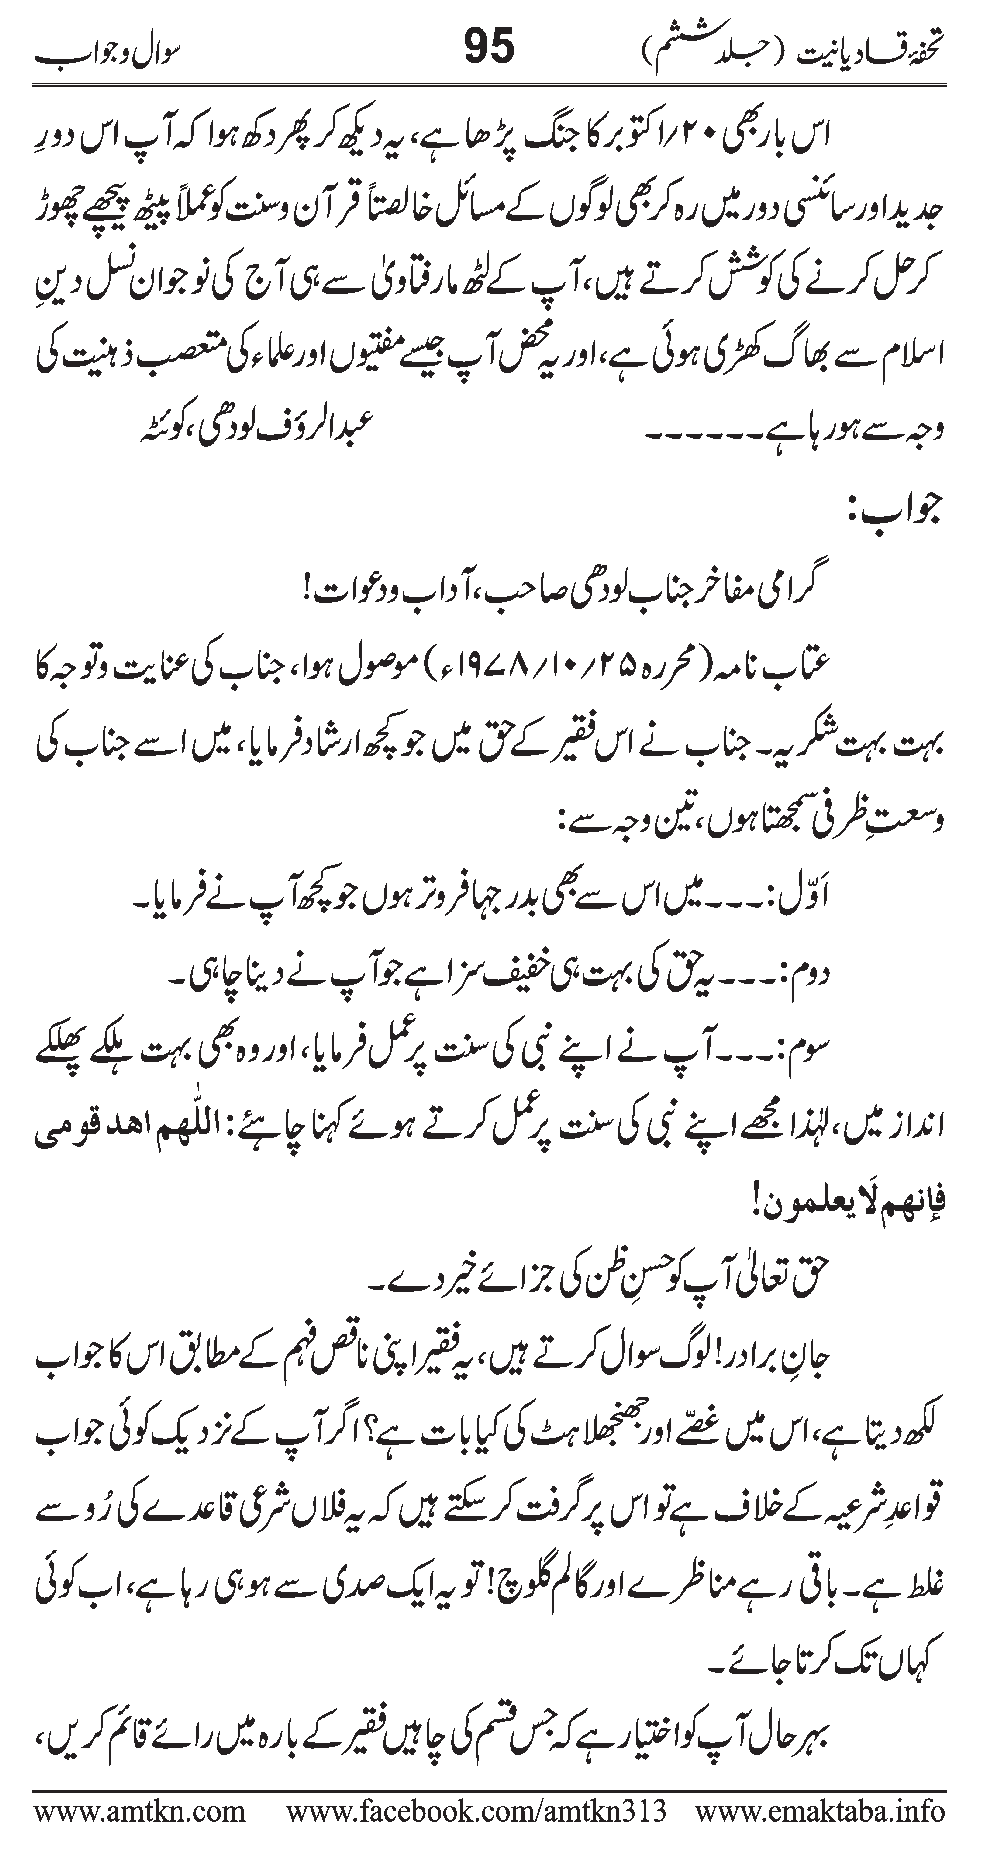 تحفۂ قادیانیت (جلد ششم) 95 سوال و جواب
اس بار بھی ۲۰/اکتوبر کا جنگ پڑھا ہے، یہ دیکھ کر پھر دکھ ہوا کہ آپ اس دورِ
جدید اور سائنسی دور میں رہ کر بھی لوگوں کے مسائل خالصتاً قرآن و سنت کو عملاً پیٹھ پیچھے چھوڑ
کر حل کرنے کی کوشش کرتے ہیں، آپ کے لٹھ مار فتاویٰ سے ہی آج کی نوجوان نسل دینِ
اسلام سے بھاگ کھڑی ہوئی ہے، اور یہ محض آپ جیسے مفتیوں اور علماء کی متعصب ذہنیت کی
وجہ سے ہو رہا ہے۔۔۔۔۔۔ عبدالرؤف لودھی، کوئٹہ
جواب:
گرامی مفاخر جناب لودھی صاحب، آداب و دعوات!
عتاب نامہ (محررہ ۲۵/۱۰/۱۹۷۸ء) موصول ہوا، جناب کی عنایت و توجہ کا
بہت بہت شکریہ۔ جناب نے اس فقیر کے حق میں جو کچھ ارشاد فرمایا، میں اسے جناب کی
وسعتِ ظرفی سمجھتا ہوں، تین وجہ سے:
اَوّل:۔۔۔میں اس سے بھی بدرجہا فروتر ہوں جو کچھ آپ نے فرمایا۔
دوم:۔۔۔یہ حق کی بہت ہی خفیف سزا ہے جو آپ نے دینا چاہی۔
سوم:۔۔۔آپ نے اپنے نبی کی سنت پر عمل فرمایا، اور وہ بھی بہت ہلکے پھلکے
انداز میں، لہٰذا مجھے اپنے نبی کی سنت پر عمل کرتے ہوئے کہنا چاہئے: اللّٰهم اهد قومی
فإنهم لَا یعلمون!
حق تعالیٰ آپ کو حسنِ ظن کی جزائے خیر دے۔
جانِ برادر! لوگ سوال کرتے ہیں، یہ فقیر اپنی ناقص فہم کے مطابق اس کا جواب
لکھ دیتا ہے، اس میں غصّے اور جھنجھلاہٹ کی کیا بات ہے؟ اگر آپ کے نزدیک کوئی جواب
قواعدِ شرعیہ کے خلاف ہے تو اس پر گرفت کر سکتے ہیں کہ یہ فلاں شرعی قاعدے کی رُو سے
غلط ہے۔ باقی رہے مناظرے اور گالم گلوچ! تو یہ ایک صدی سے ہو ہی رہا ہے، اب کوئی
کہاں تک کرتا جائے۔
بہرحال آپ کو اختیار ہے کہ جس قسم کی چاہیں فقیر کے بارہ میں رائے قائم کریں،
www.amtkn.com www.facebook.com/amtkn313 www.emaktaba.info